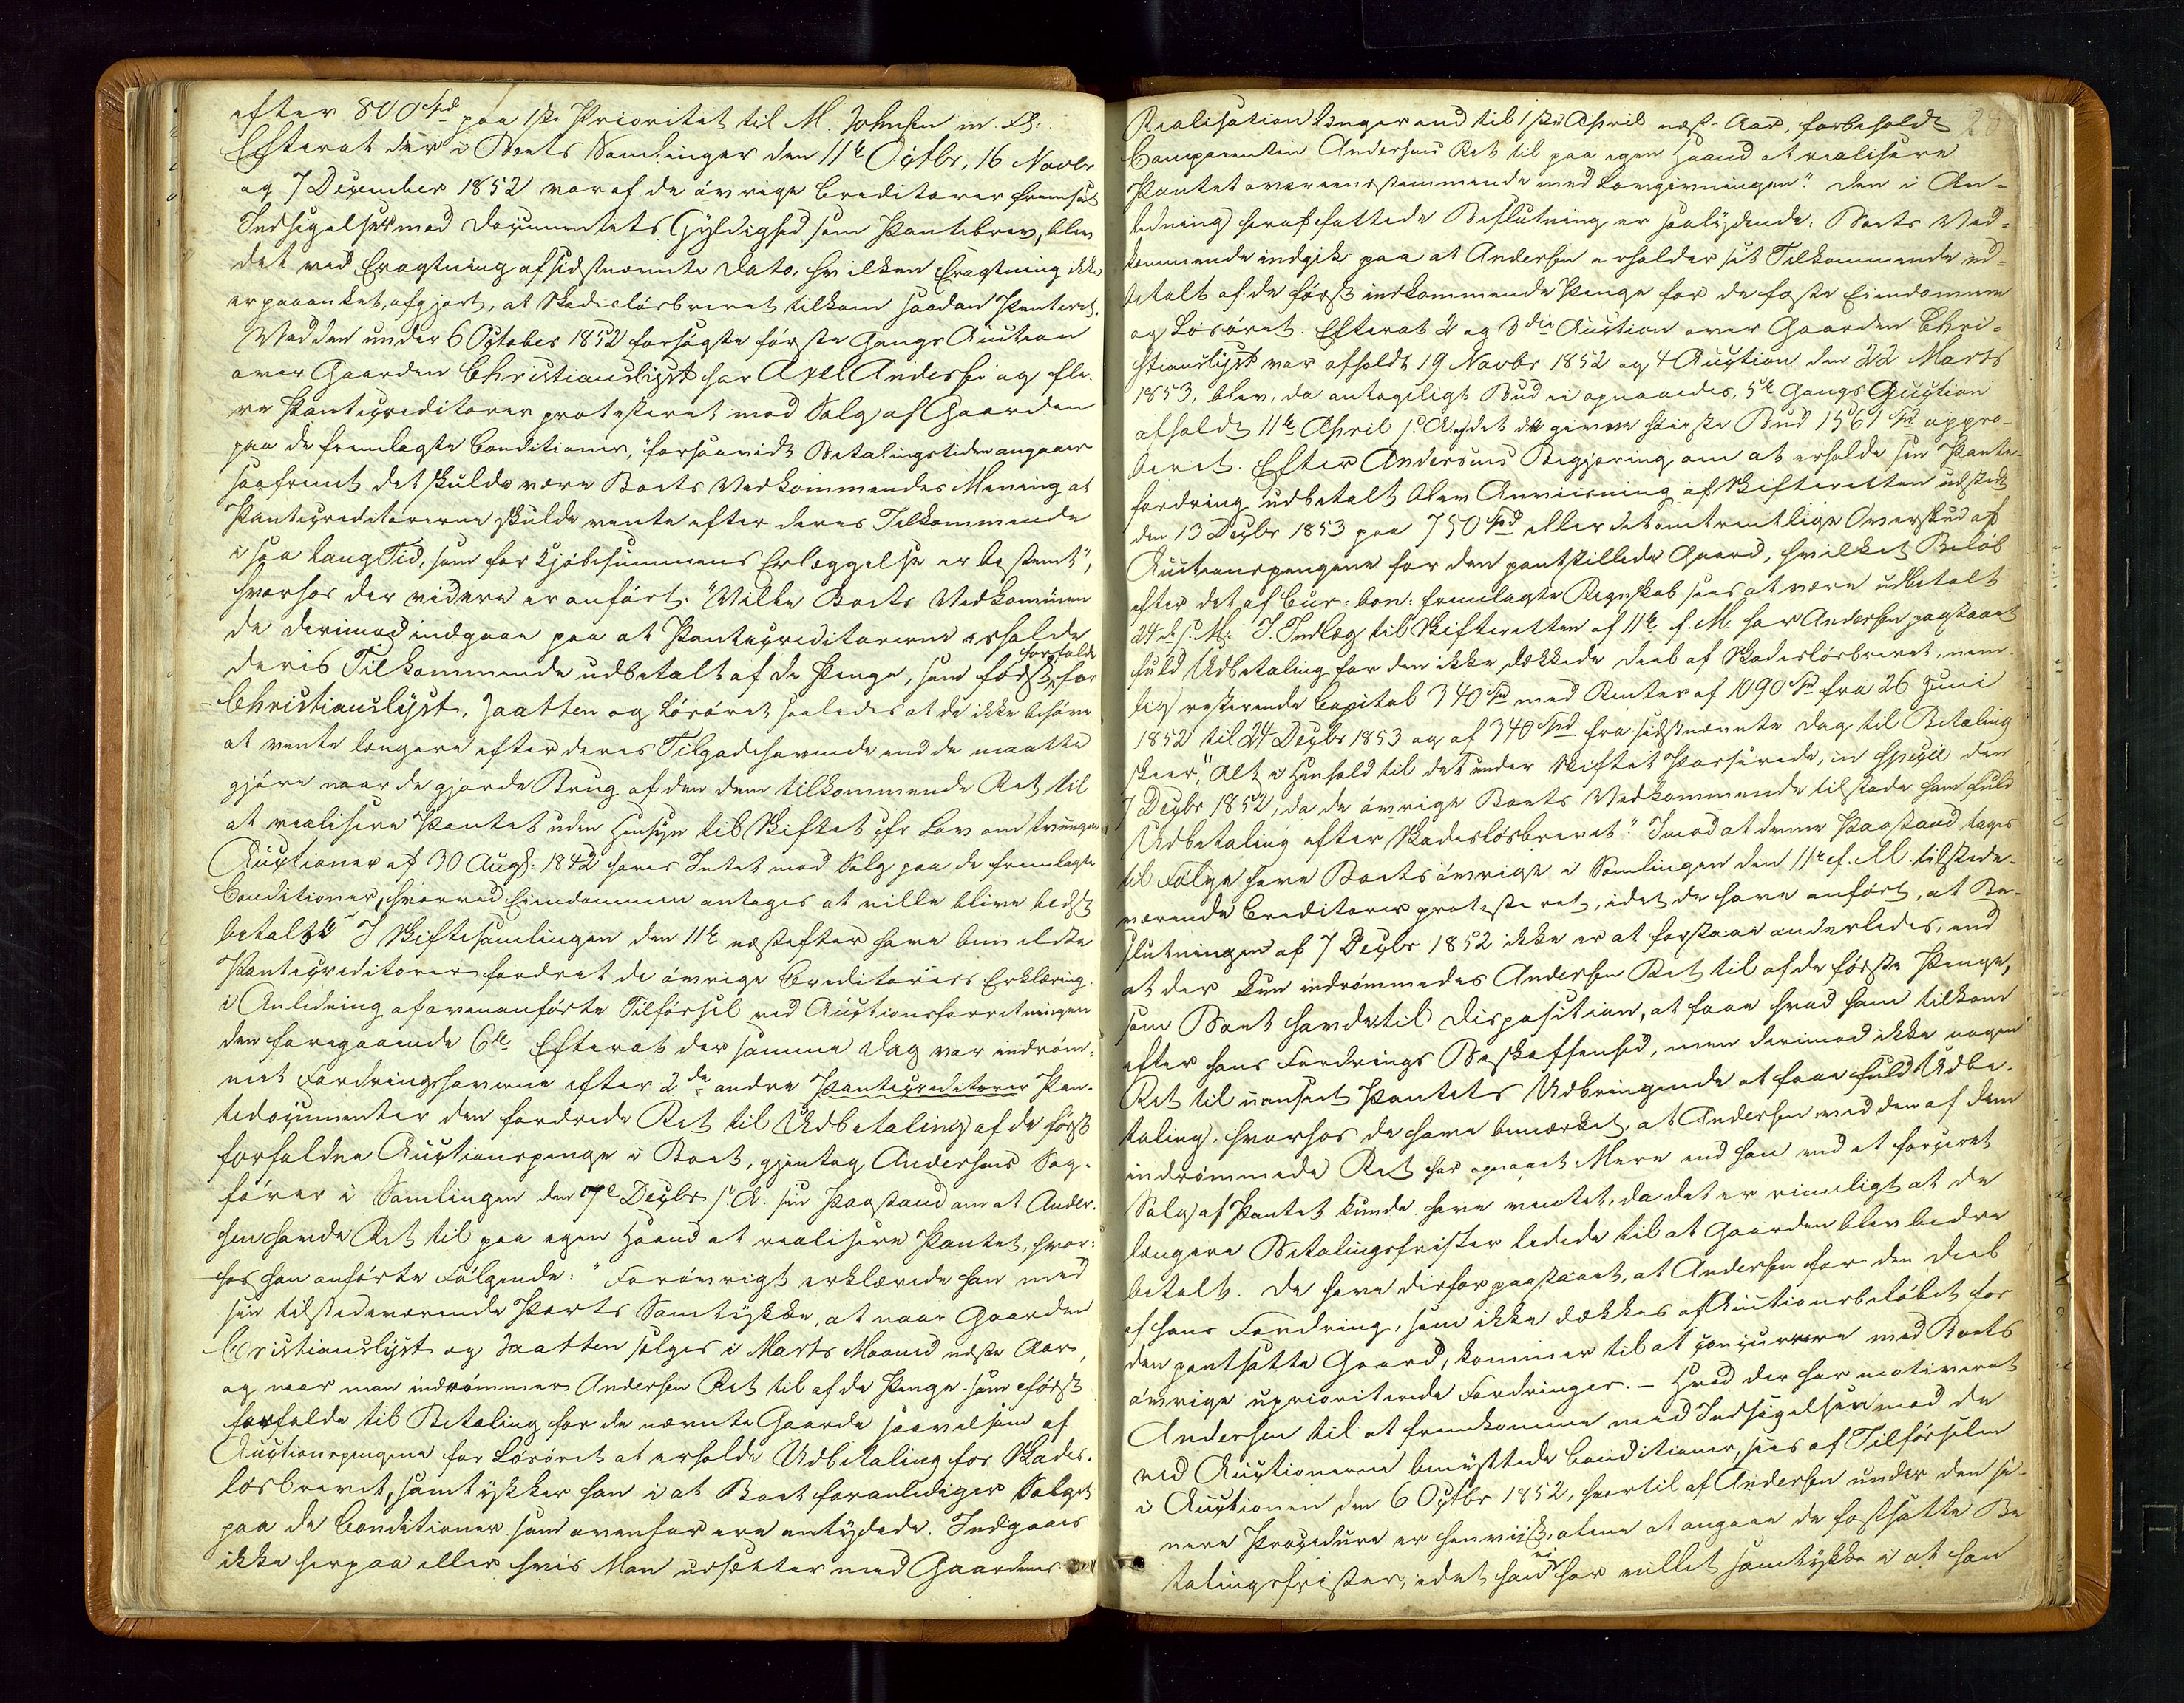 efter 800 Spd paa 1ste Prioritet til M. Johnsen m. Fl:
Efterat der i Boets Samlinger den 11te Octbr, 16 Novbr
og 7 December 1852 var af de övrige Creditorer fremsat
Indsigelser mod Documentets Gyldighed som Pantebrev, blev
det ved Eragtning af sidstnævnte Dato, hvilken Eragtning ikke
er paaanket, afgjort, at Skadeslösbrevet tilkom saadan Panteret.
Ved den under 6 October 1852 forsögte förste Gangs Auction
over Gaarden Christianslyst har Axel Andersen og fle-
re Pantecreditorer protesteret mod Salg af Gaarden
paa de fremlagte Conditioner, "forsaavidt Betalingstiden angaaer
saafremt det skulde være Boets Vedkommendes Mening at
Pantecreditorerne skulde vente efter deres Tilkommende
i saa lang Tid, som for Kjöbesummens Erlæggelse er bestemt",
hvorhos der videre er anfört: "Ville Boets Vedkommen
de derimod indgaae paa at Pantecreditorerne erholde
deres Tilkommende udbetalt af de Penge, som först forfalde for
Christianslyst, Jaatten og Lösöret saaledes at de ikke behöve
at vente længere efter deres Tilgodehavende end de maatte
gjöre naar de gjorde Brug af den dem tilkommende Ret til
at realisere Pantet uden Hensyn til Skiftet cfr Lov om tvungne
Auctioner af 30 Augs. 1842 haves Intet mod Salg paa de fremlagte
Conditioner, hvorved Eiendommen antages at ville blive bedst
betalt". I Skiftesamlingen den 11te næstefter have bemeldte
Pantecreditorer fordret de övrige Creditorers Erklæring
i Anledning af ovenanförte Tilförsel ved Auctionsforretningen
den foregaaende 6te. Efterat der samme Dag var indröm-
met Fordringshaverne efter 2de andre Pantecreditorer Pan-
tedocumenter den fordrede Ret til Udbetaling af de först
forfaldne Auctionspenge i Boet, gjentog Andersens Sag-
förer i Samlingen den 7de Decbr s. A. sin Paastand om at Ander-
sen havde Ret til paa egen Haand at realisere Pantet, hvor-
hos han anförte Fölgende: "Forövrigt erklærede han med
sin tilstedeværende Parts Samtykke, at naar Gaarden
Christianslyst og Jaatten sælges i Marts Maaned næste Aar,
og naar man indrömmer Andersen Ret til af de Penge som först
forfalde til Betaling for de nævnte Gaarde saavelsom af
Auctionspengene for Lösöret at erholde Udbetaling for Skades-
lösbrevet, samtykker han i at Boet foranlediger Salget
paa de Conditioner som ovenfor ere antydede. Indgaaes
ikke herpaa eller hvis Man udsætter med Gaardenes
Realisation længer end til 1ste April næst. Aar, forbeholdt
Comparenten Andersens Ret til paa egen Haand at realisere
Pantet overeensstemmende med Lovgivningen". Den i An-
ledning heraf fattede Beslutning er saalydende: Boets Ved-
kommende indgik paa at Andersen erholder sit Tilkommende ud-
betalt af de först indkommende Penge for de faste Eiendomme
og Lösöret. Efterat 2 og 3die Auction over Gaarden Chri-
stianslyst var afholdt 19 Novbr 1852 og 4 Auction den 22 Marts
1853, blev, da antageligt Bud ei opnaaedes, 5te Gangs Auction
afholdt 11te April s. A. og det da givne höieste Bud 1561 Spd appro-
beret. Efter Andersens Begjæring om at erholde sin Pante-
fordring udbetalt blev Anviisning af Skifteretten udstedt
den 13 Decbr 1853 paa 750 Spd eller det omtrentlige Overskud af
Auctionspengene for den pantstillede Gaard, hvilket Belöb
efter det af Cur. bon. fremlagte Regnskab sees at være udbetalt
24 d. s. M. I Indlæg til Skifteretten af 11te f. M. har Andersen paastaaet
fuld Udbetaling for den ikke dækkede Deel af Skadeslösbrevet, nem-
lig resterende Capital 340 Spd med Renter af 1090 Spd fra 26 Juni
1852 til 24 Decbr 1853 og af 340 Spd fra sidstnævnte Dag til Betaling
skeer", "Alt i Henhold til det under Skiftet Passerede, in specie den
7 Decbr 1852, da de övrige Boets Vedkommende tilstode ham fuld
Udbetaling efter Skadeslösbrevet". Imod at denne Paastand tages
til Fölge have Boets övrige i Samlingen den 11te f. M. tilstede-
værende Creditorer protesteret, idet de have anfört, at Be-
slutningen af 7 Decbr 1852 ikke er at forstaae anderledes, end
at der kun indrömmedes Andersen Ret til af de förste Penge,
som Boet havde til Disposition, at faae hvad ham tilkom
efter hans Fordrings Beskaffenhed, men derimod ikke nogen
Ret til uanseet Pantets Udbringende at faae fuld Udbe-
taling, hvorhos de have bemærket, at Andersen ved den af dem
indrömmede Ret har opnaaet Mere end han ved et forceret
Salg af Pantet kunde have ventet, da det er rimeligt at de
længere Betalingsfrister ledede til at Gaarden blev bedre
betalt. De have derfor paastaaet, at Andersen for den Deel
af hans Fordring, som ikke dækkes af Auctionsbelöbet for
den pantsatte Gaard, kommer til at concurrere med Boets
övrige uprioriterede Fordringer. – Hvad der har motiveret
Andersen til at fremkomme med Indsigelser mod de
ved Auctionerne benyttede Conditioner, sees af Tilförselen
i Auctionen den 6 Octbr 1852, hvortil af Andersen under den se-
nere Procedure er henviist, alene at angaae de fastsatte Be
talingsfrister, idet han ei har villet samtykke i at han